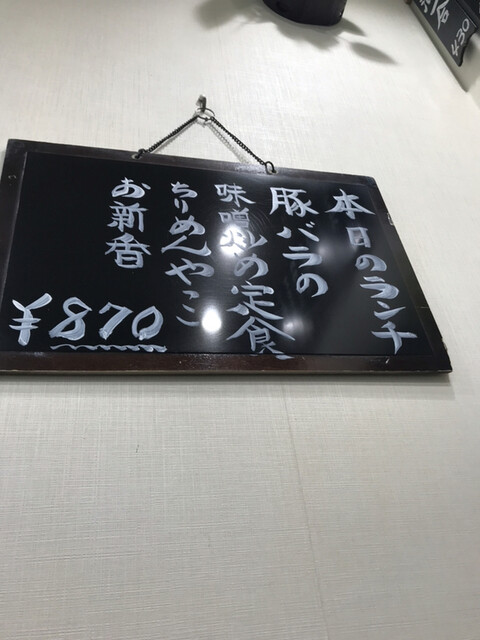 本日のランチ
豚バラの
味噌炒め定食
ちりめんやっこ
お新香
¥870
430